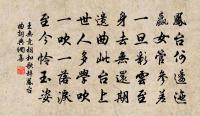 鳳台何逶迤
嬴女管參差
一旦彩雲至
身去無還期
遺曲此台上
世人多學吹
一吹一落淚
至今憐玉姿
王無競相和歌辭鳳台
曲詞典網集